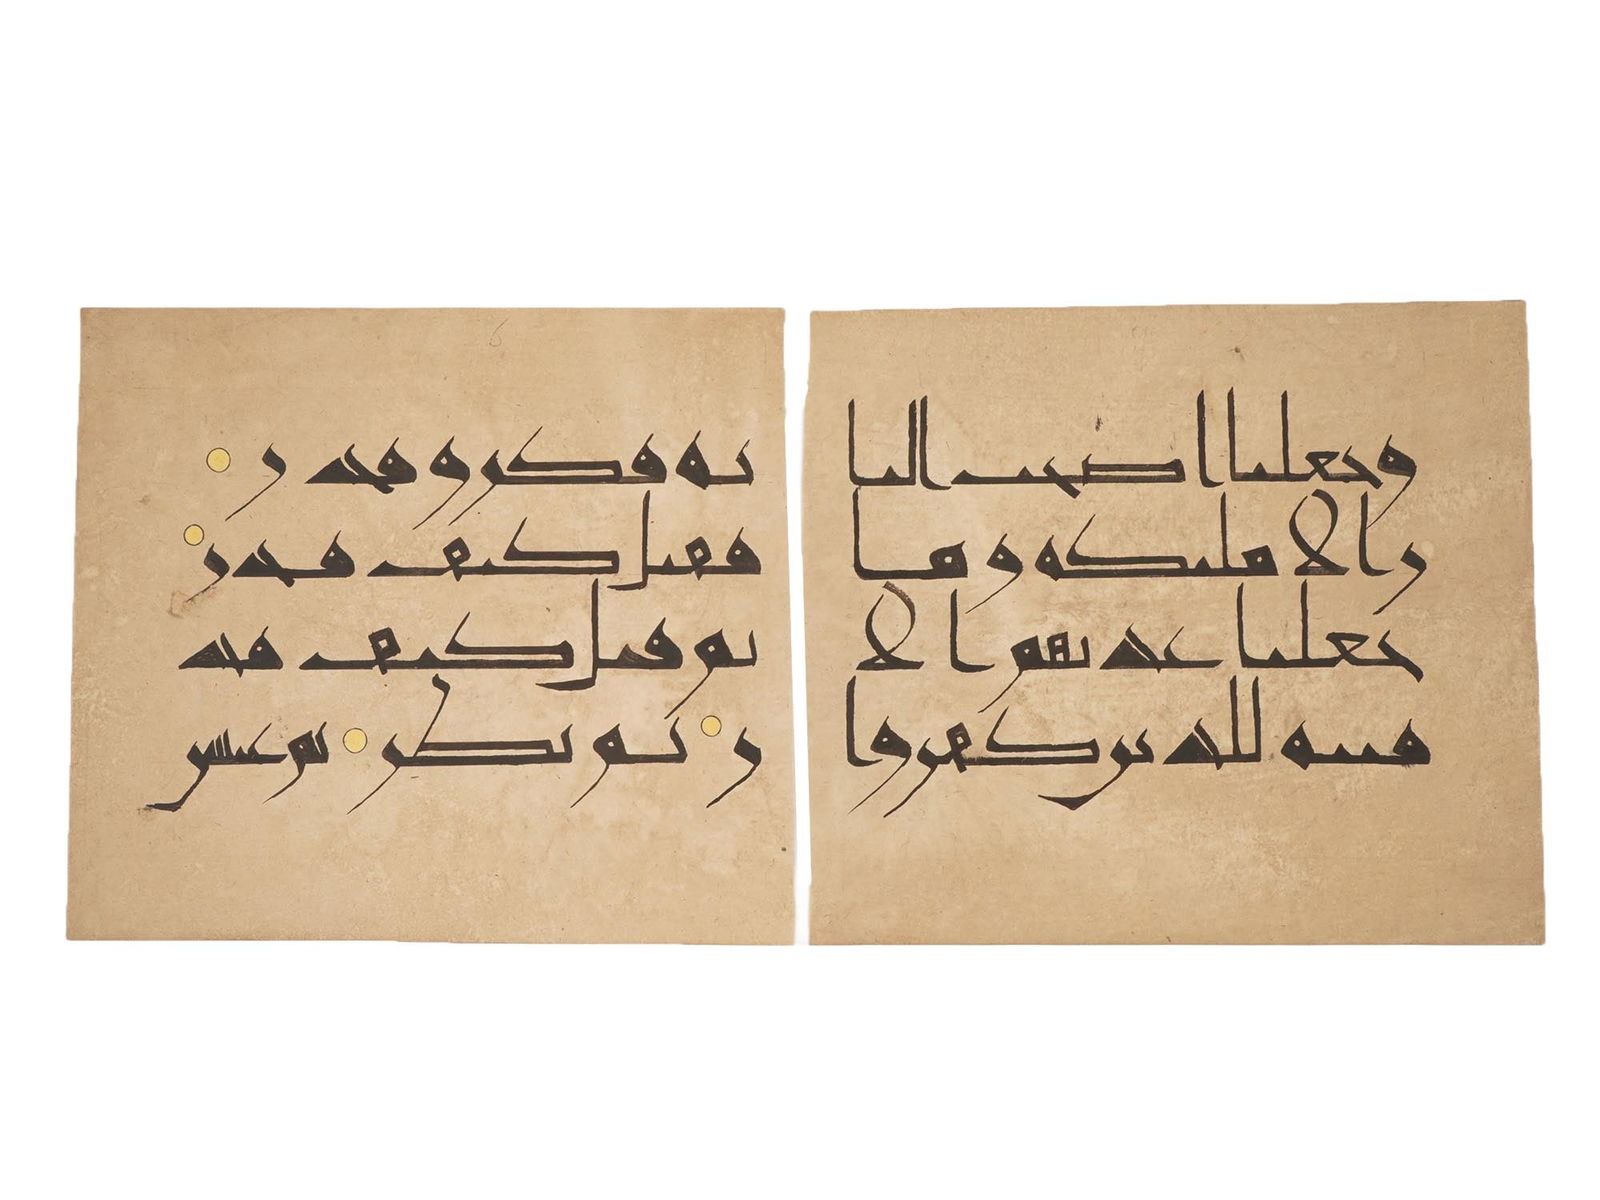 وجعلنا اصحب النا
ر الا ملئكة وما
جعلنا عدتهم الا
فتنة للذين كفروا
نه فكر وقدر
فقتل كيف قدر
ثم قتل كيف قد
ر ثم نظر ثم عبس